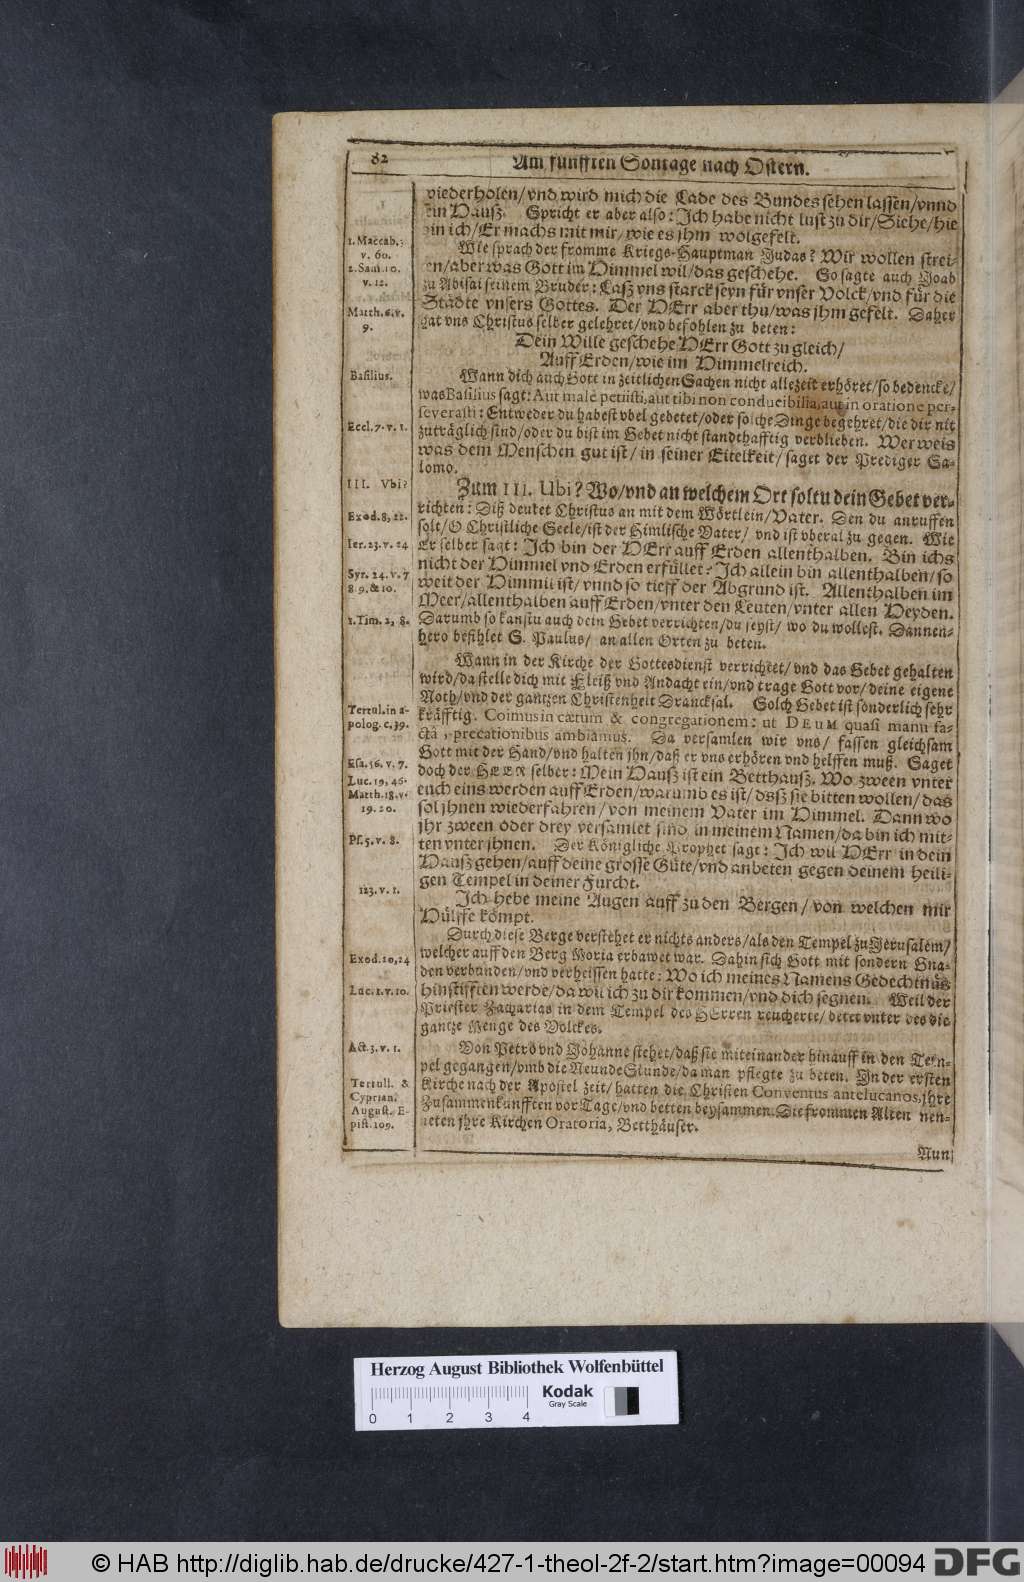 82
Am fünfften Sontage nach Ostern.
wiederholen/ vnd wird mich die Lade des Bundes sehen lassen/ vnnd
sein Hauß. Spricht er aber also: Ich habe nicht lust zu dir/ Siehe/ hie
bin ich/ Er machs mit mir/ wie es jhm wolgefelt.
1. Maccab. 3
v. 60.
2. Sam. 10.
v. 12.
Wie sprach der fromme Kriegs-Hauptman Judas? Wir wollen strei-
ten/ aber was Gott im Himmel wil/ das geschehe. So sagte auch Joab
zu Abisai seinem Bruder: Laß vns starck seyn für vnser Volck/ vnd für die
Städte vnsers Gottes. Der HErr aber thu/ was jhm gefelt. Daher
Matth. 6. v.
9.
hat vns Christus selber gelehret/ vnd befohlen zu beten:
Dein Wille geschehe HErr Gott zu gleich/
Auff Erden/ wie im Himmelreich.
Basilius.
Wann dich auch Gott in zeitlichen Sachen nicht allezeit erhöret/ so bedencke/
was Basilius sagt: Aut male petiisti, aut tibi non conducibilia, aut in oratione per-
severasti: Entweder du habest vbel gebetet/ oder solche Dinge begehret/ die dir nit
Eccl. 7. v. 1.
zuträglich sind/ oder du bist im Gebet nicht standthafftig verblieben. Wer weis
was dem Menschen gut ist/ in seiner Eitelkeit/ saget der Prediger Sa-
lomo.
III. Vbi?
Zum III. Ubi? Wo/ vnd an welchem Ort soltu dein Gebet ver-
richten: Diß deutet Christus an mit dem Wörtlein/ Vater. Den du anruffen
Exod. 8, 22.
solt/ O Christliche Seele/ ist der Himlische Vater/ vnd ist vberal zu gegen. Wie
Ier. 23. v. 24
Er selber sagt: Ich bin der HErr auff Erden allenthalben. Bin ichs
nicht der Himmel vnd Erden erfüllet? Ich allein bin allenthalben/ so
Syr. 24. v. 7
8. 9. & 10.
weit der Himmel ist/ vnnd so tieff der Abgrund ist. Allenthalben im
Meer/ allenthalben auff Erden/ vnter den Leuten/ vnter allen Heyden.
1. Tim. 2, 8.
Darumb so kanstu auch dein Gebet verrichten/ du seyst/ wo du wollest. Dannen-
hero befihlet S. Paulus/ an allen Orten zu beten.
Wann in der Kirche der Gottesdienst verrichtet/ vnd das Gebet gehalten
wird/ da stelle dich mit Fleiß vnd Andacht ein/ vnd trage Gott vor/ deine eigene
Noth/ vnd der gantzen Christenheit Drancksal. Solch Gebet ist sonderlich sehr
Tertul. in a-
polog. c. 39.
kräfftig. Coimus in cœtum & congregationem: ut DEUM quasi manu fa-
ctâ, precationibus ambiamus. Da versamlen wir vns/ fassen gleichsam
Gott mit der Hand/ vnd halten jhn/ daß er vns erhören vnd helffen muß. Saget
Esa. 56. v. 7.
doch der HERR selber: Mein Hauß ist ein Betthauß. Wo zween vnter
Luc. 19, 46.
Matth. 18. v.
19. 20.
euch eins werden auff Erden/ warumb es ist/ daß sie bitten wollen/ das
sol jhnen wiederfahren/ von meinem Vater im Himmel. Dann wo
jhr zween oder drey versamlet sind in meinem Namen/ da bin ich mit-
Ps. 5. v. 8.
ten vnter jhnen. Der Königliche Prophet sagt: Ich wil HErr in dein
Hauß gehen/ auff deine grosse Güte/ vnd anbeten gegen deinem heili-
gen Tempel in deiner Furcht.
123. v. 1.
Ich hebe meine Augen auff zu den Bergen/ von welchen mir
Hülffe kömpt.
Durch diese Berge verstehet er nichts anders/ als den Tempel zu Jerusalem/
welcher auff den Berg Moria erbawet war. Dahin sich Gott mit sondern Gna-
Exod. 20, 24
den verbunden/ vnd verheissen hatte: Wo ich meines Namens Gedechtnüs
Luc. 1. v. 10.
hinstifften werde/ da wil ich zu dir kommen/ vnd dich segnen. Weil der
Priester Zacharias in dem Tempel des HErren reucherte/ betet vnter des die
gantze Menge des Volckes.
Act. 3. v. 1.
Von Petro vnd Johanne stehet/ daß sie miteinander hinauff in den Tem-
pel gegangen/ vmb die Neunde Stunde/ da man pflegte zu beten. In der ersten
Tertull. &
Cyprian.
August. E-
pist. 109.
Kirche nach der Apostel zeit/ hatten die Christen Conventus antelucanos, jhre
Zusammenkunfften vor Tage/ vnd betten beysammen. Die frommen Alten nen-
neten jhre Kirchen Oratoria, Betthäuser.
Nun
Herzog August Bibliothek Wolfenbüttel
0 1 2 3 4
Kodak
Gray Scale
© HAB http://diglib.hab.de/drucke/427-1-theol-2f-2/start.htm?image=00094
DFG